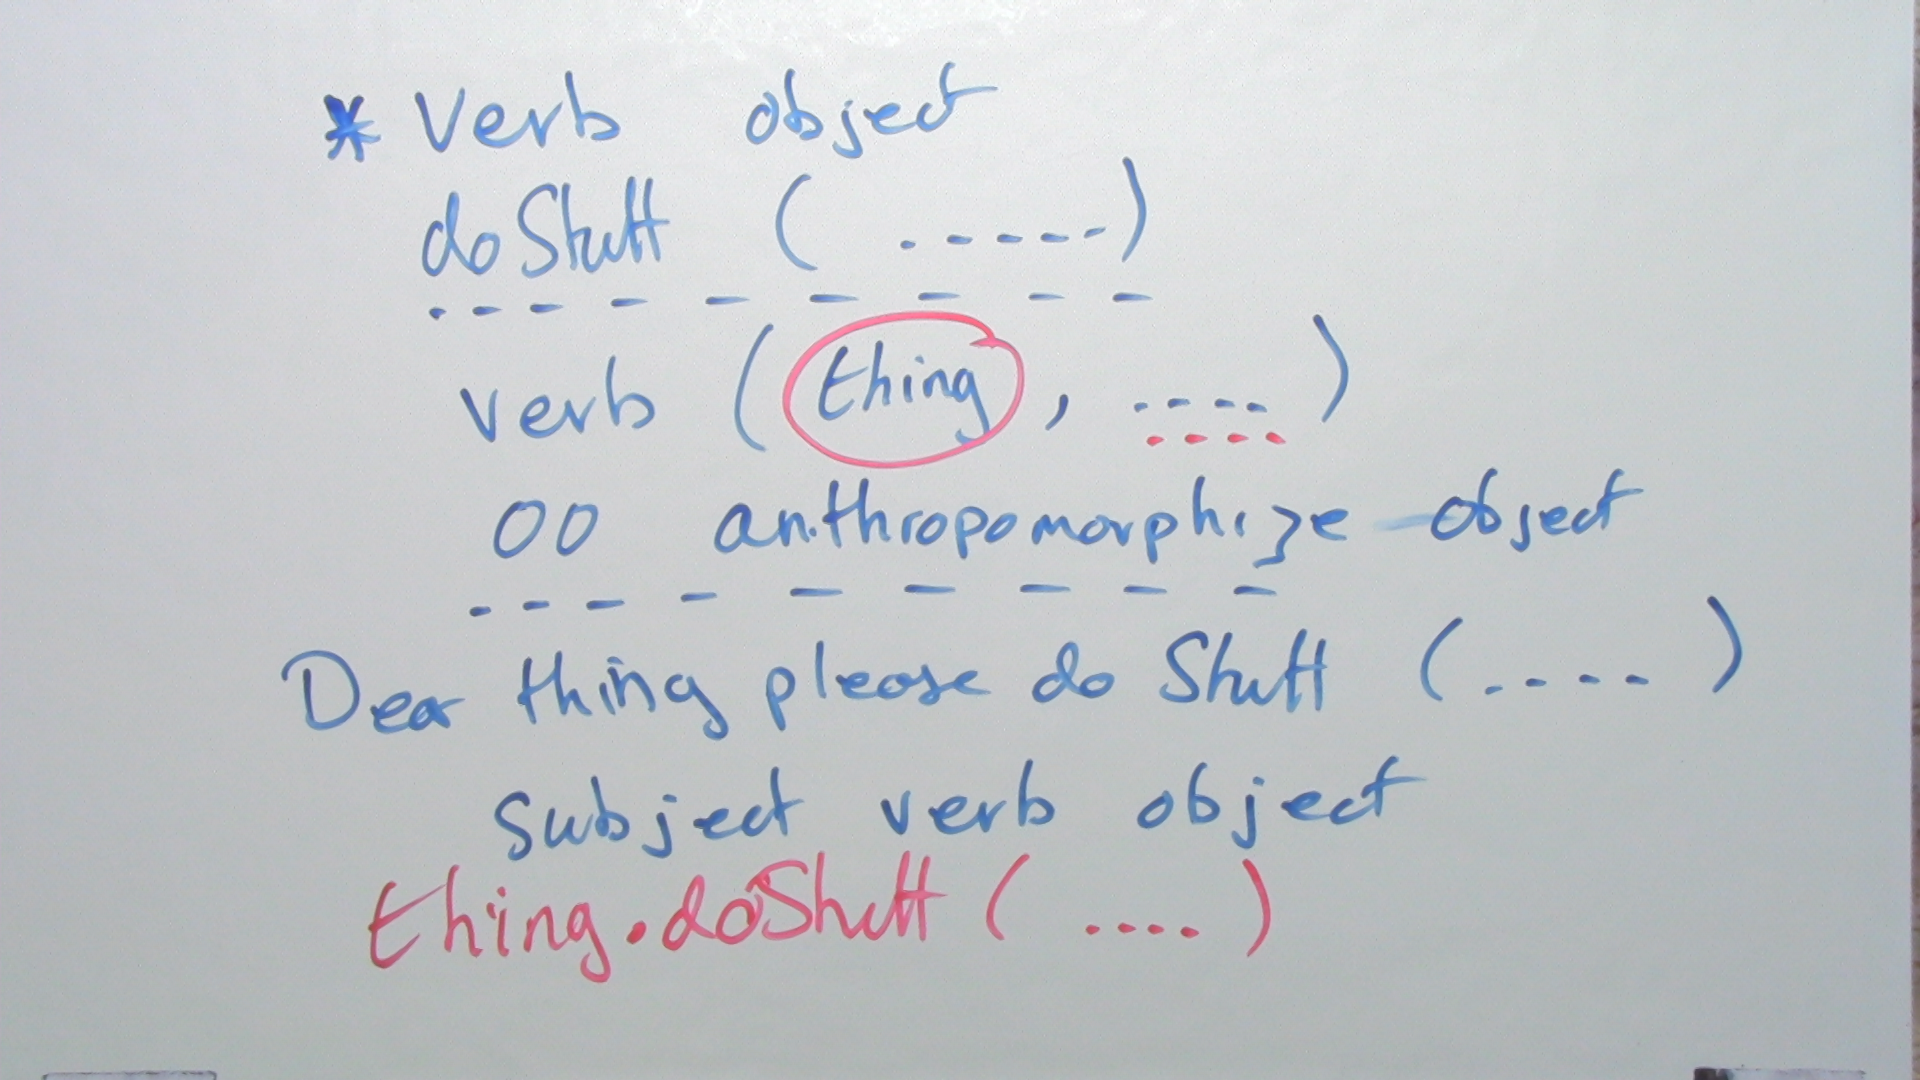 * Verb object
doStuff ( ..... )
verb ( thing , .... )
OO anthropomorphize object
Dear thing please do Stuff ( .... )
subject verb object
thing.doStuff ( .... )